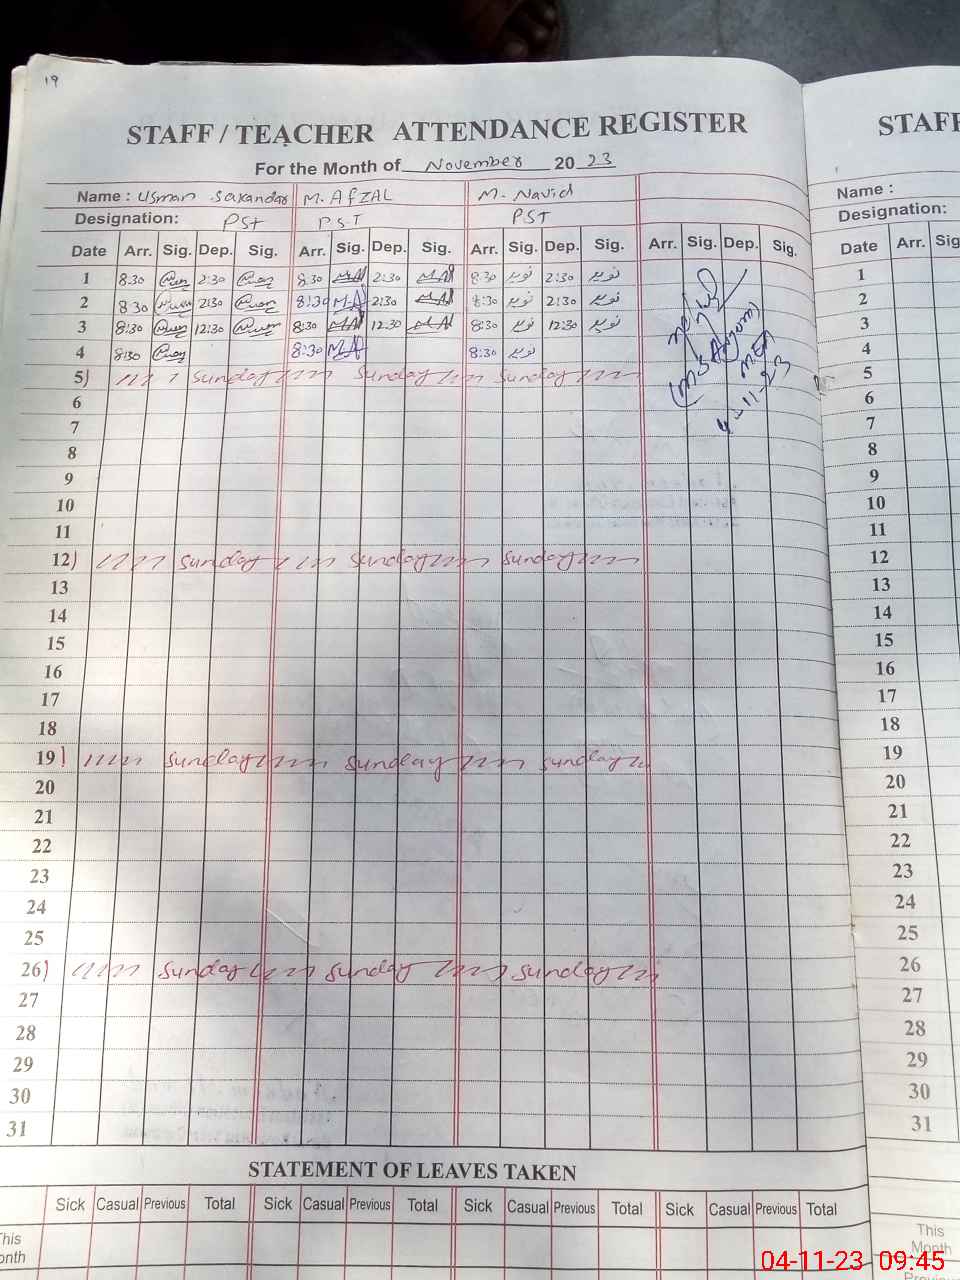 19
STAFF / TEACHER ATTENDANCE REGISTER
For the Month of November 20 23
Name : Usman Sakandar M. AFZAL M. Navid
Designation: PST PST PST
Date Arr. Sig. Dep. Sig. Arr. Sig. Dep. Sig. Arr. Sig. Dep. Sig. Arr. Sig. Dep. Sig.
1 8:30 2:30 8:30 MA 2:30 MA 8:30 نوید 2:30 نوید
2 8:30 2:30 8:30 MA 2:30 MA 8:30 نوید 2:30 نوید
3 8:30 12:30 8:30 MA 12:30 MA 8:30 نوید 12:30 نوید
4 8:30 8:30 MA 8:30 نوید
5) sunday sunday sunday
6
7
8
9
10
11
12) sunday sunday sunday
13
14
15
16
17
18
19) sunday sunday sunday
20
21
22
23
24
25
26) sunday sunday sunday
27
28
29
30
31
MEA
4-11-23
STATEMENT OF LEAVES TAKEN
Sick Casual Previous Total Sick Casual Previous Total Sick Casual Previous Total Sick Casual Previous Total
This
onth
STAFF
Name :
Designation:
Date Arr. Sig
1
2
3
4
5
6
7
8
9
10
11
12
13
14
15
16
17
18
19
20
21
22
23
24
25
26
27
28
29
30
31
This
Month
Previous
04-11-23 09:45